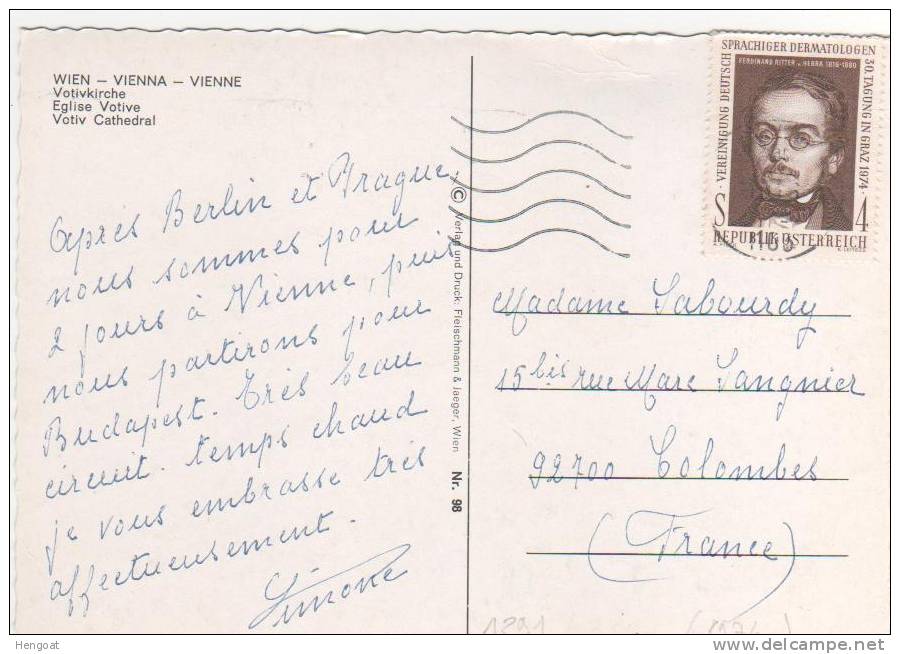 WIEN – VIENNA – VIENNE
Votivkirche
Eglise Votive
Votiv Cathedral
Après Berlin et Prague
nous sommes pour
2 jours à Vienne, puis
nous partirons pour
Budapest. Très beau
circuit. temps chaud
je vous embrasse très
affectueusement.
Simone
© Verlag und Druck: Fleischmann & Jaeger, Wien Nr. 98
VEREINIGUNG DEUTSCH SPRACHIGER DERMATOLOGEN 30. TAGUNG IN GRAZ 1974
FERDINAND RITTER v. HEBRA 1816-1880
S 4
REPUBLIK ÖSTERREICH
Madame Sabourdy
15 bis rue Marc Sangnier
92700 Colombes
(France)
1291
Hengoat
www.delcampe.net